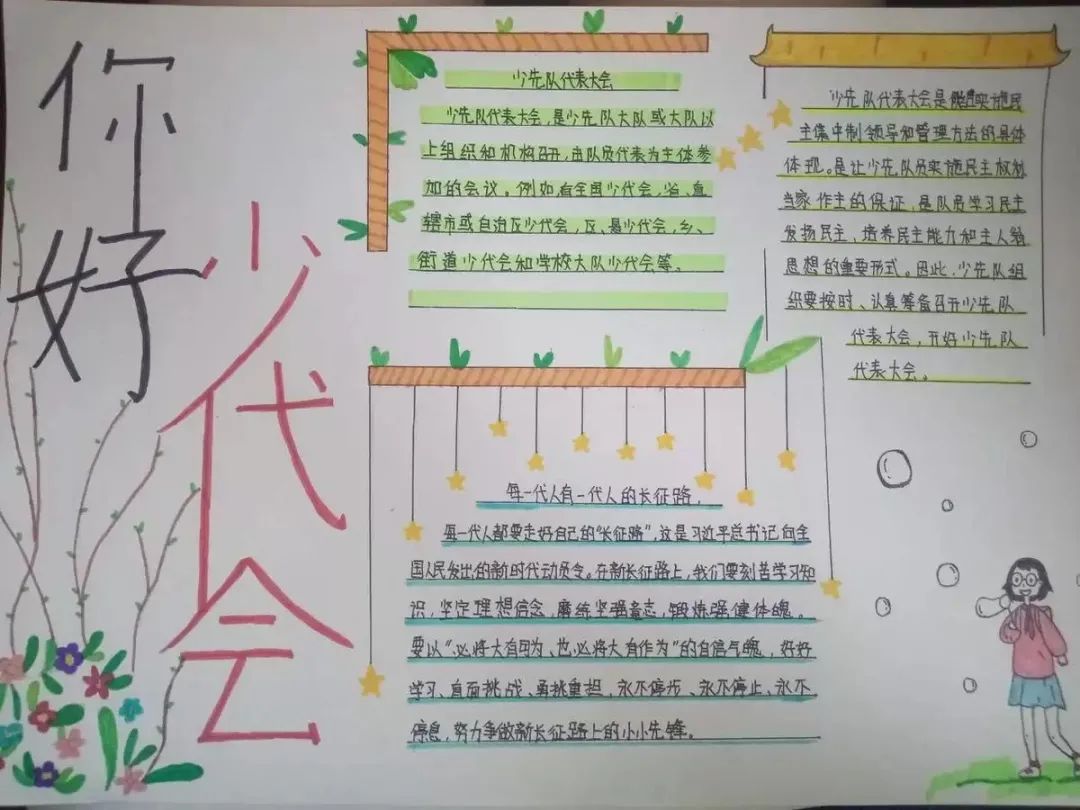 你好
少代会
少先队代表大会
少先队代表大会,是少先队大队或大队以
上组织和机构召开,由队员代表为主体参
加的会议。例如有全国少代会,省、直
辖市或自治区少代会,区、县少代会,乡、
街道少代会和学校大队少代会等。
少先队代表大会是实施民
主集中制领导和管理方法的具体
体现。是让少先队员实施民主权利
当家作主的保证,是队员学习民主
发扬民主,培养民主能力和主人翁
思想的重要形式。因此,少先队组
织要按时、认真筹备召开少先队
代表大会,开好少先队
代表大会。
每一代人有一代人的长征路,
每一代人都要走好自己的“长征路”,这是习近平总书记向全
国人民发出的新时代动员令。在新长征路上,我们要刻苦学习知
识,坚定理想信念,磨练坚强意志,锻炼强健体魄。
要以“必将大有可为、也必将大有作为”的自信气魄,好好
学习、直面挑战、勇挑重担,永不停步、永不停止、永不
停息,努力争做新长征路上的小小先锋。